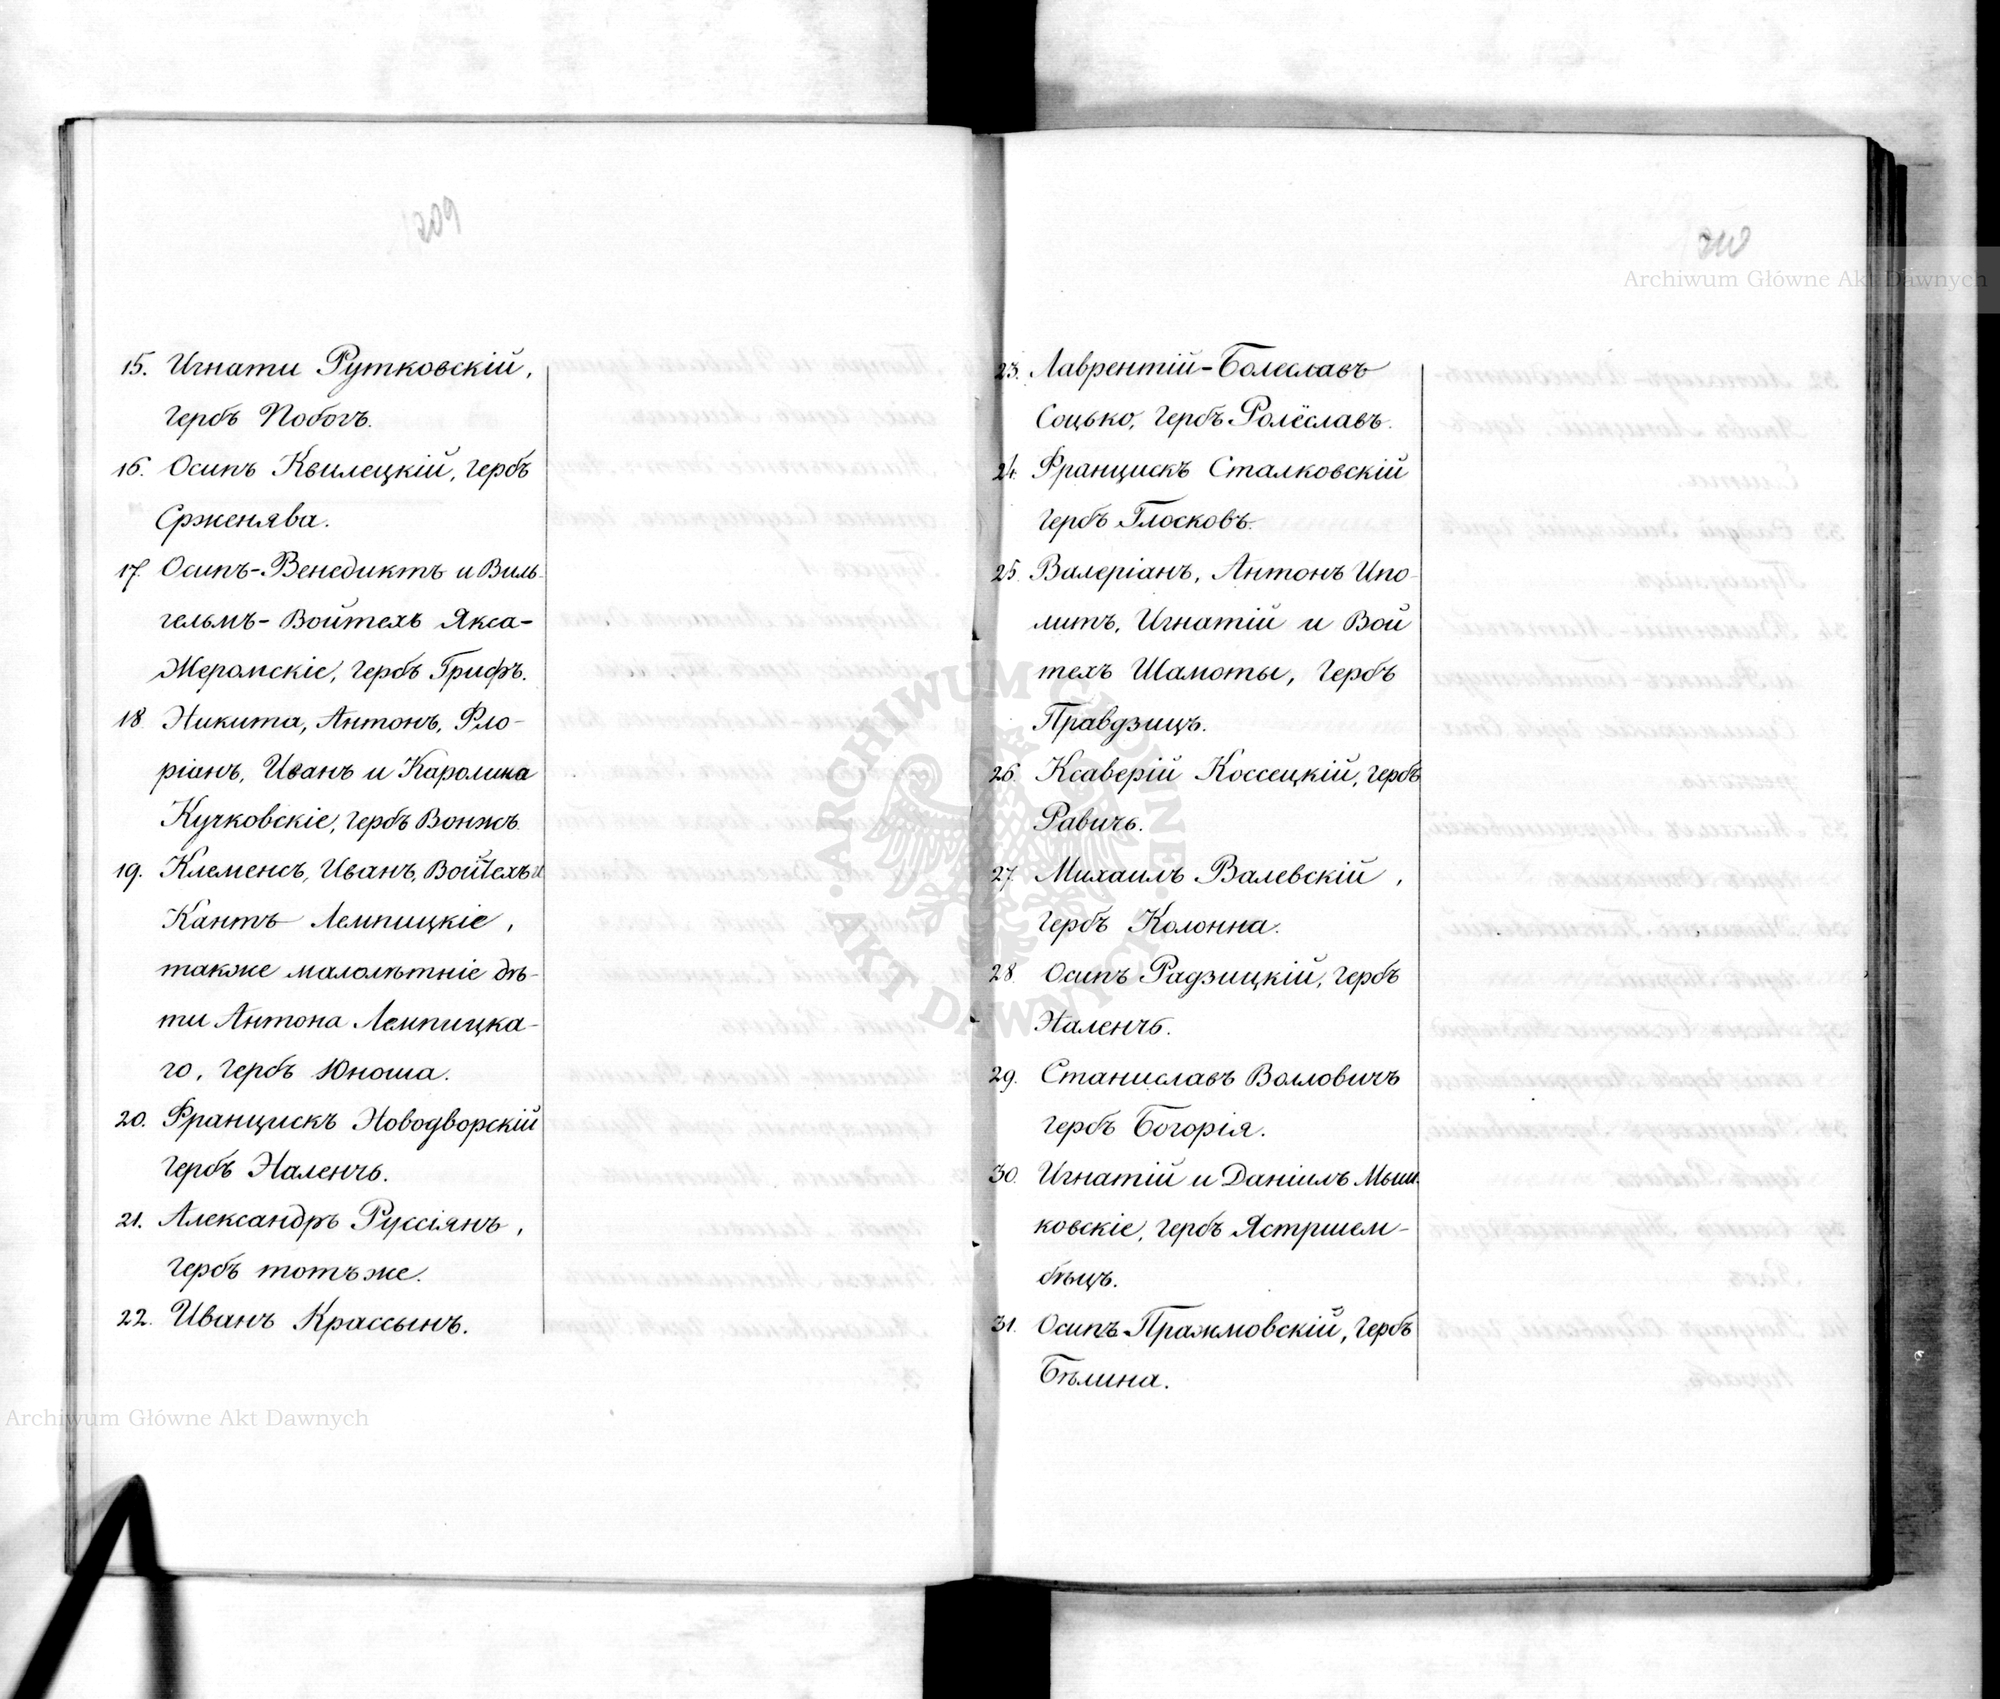 209
15. Игнати Рутковскій,
гербъ Побогъ.
16. Осипъ Квилецкій, гербъ
Срженява.
17. Осипъ-Венедиктъ и Виль-
гельмъ-Войтехъ Якса-
Жеромскіе, гербъ Грифъ.
18. Никита, Антонъ, Фло-
ріанъ, Иванъ и Каролина
Кучковскіе, гербъ Вонжъ.
19. Клеменсъ, Иванъ, Войтехъ и
Кантъ Лемпицкіе,
также малолѣтніе дѣ-
ти Антона Лемпицка-
го, гербъ Юноша.
20. Францискъ Новодворскій
гербъ Наленчъ.
21. Александръ Руссіянъ,
гербъ тотъже.
22. Иванъ Крассынъ.
210
23. Лаврентій-Болеславъ
Соцько, гербъ Ролёславъ.
24. Францискъ Сталковскій
гербъ Глосковъ.
25. Валеріанъ, Антонъ Ипо-
литъ, Игнатій и Вой
техъ Шамоты, гербъ
Правдзицъ.
26. Ксаверій Коссецкій, гербъ
Равичъ.
27. Михаилъ Валевскій,
гербъ Колонна.
28. Осипъ Радзицкій, гербъ
Наленчъ.
29. Станиславъ Волловичъ
гербъ Богорія.
30. Игнатій и Даніилъ Мыш-
ковскіе, гербъ Ястршем-
бѣцъ.
31. Осипъ Пражмовскій, гербъ
Бѣлина.
Archiwum Główne Akt Dawnych
ARCHIWUM GŁÓWNE AKT DAWNYCH
Archiwum Główne Akt Dawnych